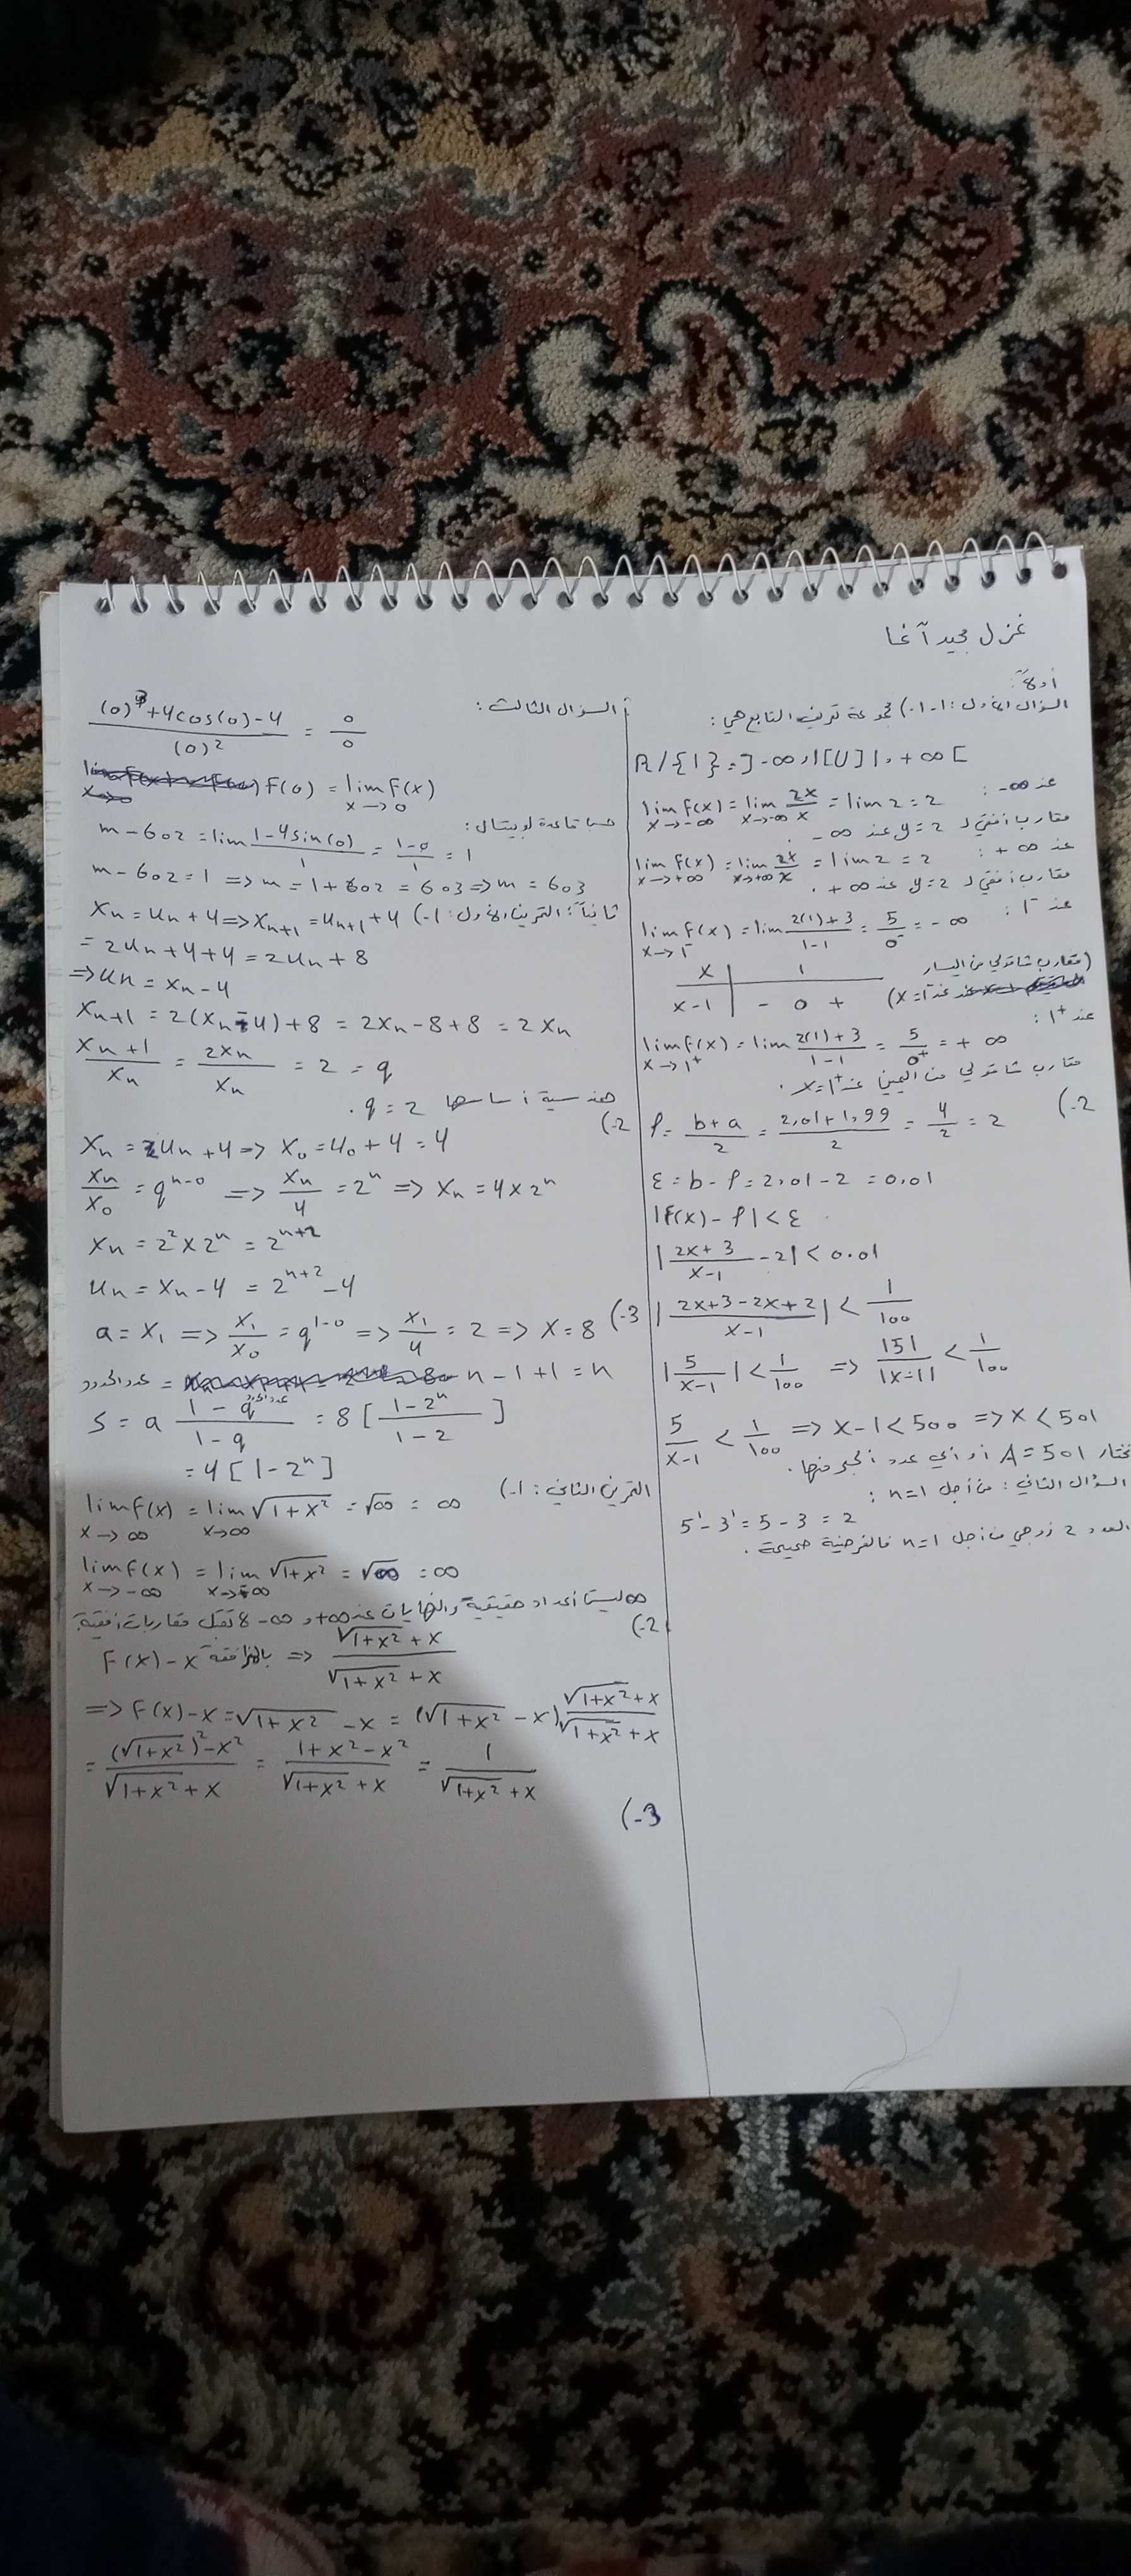 غزل مجيد آغا
أولاً:
السؤال الأول: 1-1-) مجموعة تعريف التابع هي:
R/{1} = ]-∞,1[U]1,+∞[
عند -∞:
lim x→-∞ f(x) = lim x→-∞ 2x/x = lim 2 = 2
مقارب أفقي لـ y=2 عند -∞
عند +∞:
lim x→+∞ f(x) = lim x→+∞ 2x/x = lim 2 = 2
مقارب أفقي لـ y=2 عند +∞.
عند 1⁻:
lim x→1⁻ f(x) = lim 2(1)+3/1-1 = 5/0⁻ = -∞
x | 1
x-1 | - 0 +
(مقارب شاقولي من اليسار
عند x=1⁻)
عند 1⁺:
lim x→1⁺ f(x) = lim 2(1)+3/1-1 = 5/0⁺ = +∞
مقارب شاقولي من اليمين عند x=1⁺.
2-) ℓ = b+a/2 = 2,01+1,99/2 = 4/2 = 2
ε = b-ℓ = 2,01-2 = 0,01
|f(x)-ℓ|<ε
|2x+3/x-1 - 2| < 0.01
|2x+3-2x+2/x-1| < 1/100
|5/x-1| < 1/100 => |5|/|x-1| < 1/100
5/x-1 < 1/100 => x-1<500 => x<501
نختار A=501 أو أي عدد أكبر منها.
السؤال الثاني: من أجل n=1:
5¹-3¹ = 5-3 = 2
العدد 2 زوجي من أجل n=1 فالفرضية صحيحة.
السؤال الثالث:
(0)³+4cos(0)-4/(0)² = 0/0
F(0) = lim x→0 f(x)
حسب قاعدة لوبيتال:
m-602 = lim 1-4sin(0)/1 = 1-0/1 = 1
m-602=1 => m=1+602=603 => m=603
ثانياً: التمرين الأول: 1-) xn=un+4 => xn+1=un+1+4
=2un+4+4=2un+8
=> un=xn-4
xn+1 = 2(xn-4)+8 = 2xn-8+8 = 2xn
xn+1/xn = 2xn/xn = 2 = q
هندسية أساسها q=2.
2-) xn = un+4 => x₀=u₀+4=4
xn/x₀ = qⁿ⁻⁰ => xn/4 = 2ⁿ => xn=4×2ⁿ
xn = 2²×2ⁿ = 2ⁿ⁺²
un = xn-4 = 2ⁿ⁺²-4
3-) a=x₁ => x₁/x₀ = q¹⁻⁰ => x₁/4 = 2 => x=8
عدد الحدود = n-1+1=n
S = a 1-q^عدد الحدود/1-q = 8[1-2ⁿ/1-2]
=4[1-2ⁿ]
التمرين الثاني: 1-)
lim x→∞ f(x) = lim x→∞ √1+x² = √∞ = ∞
lim x→-∞ f(x) = lim x→-∞ √1+x² = √∞ = ∞
∞ ليست أعداد حقيقية والنهايات عند +∞ و -∞ لا تقبل مقاربات أفقية.
2-) F(x)-x بالمرافقة => √1+x²+x/√1+x²+x
=> F(x)-x = √1+x² -x = (√1+x² -x) √1+x²+x/√1+x²+x
= (√1+x²)²-x²/√1+x²+x = 1+x²-x²/√1+x²+x = 1/√1+x²+x
3-)